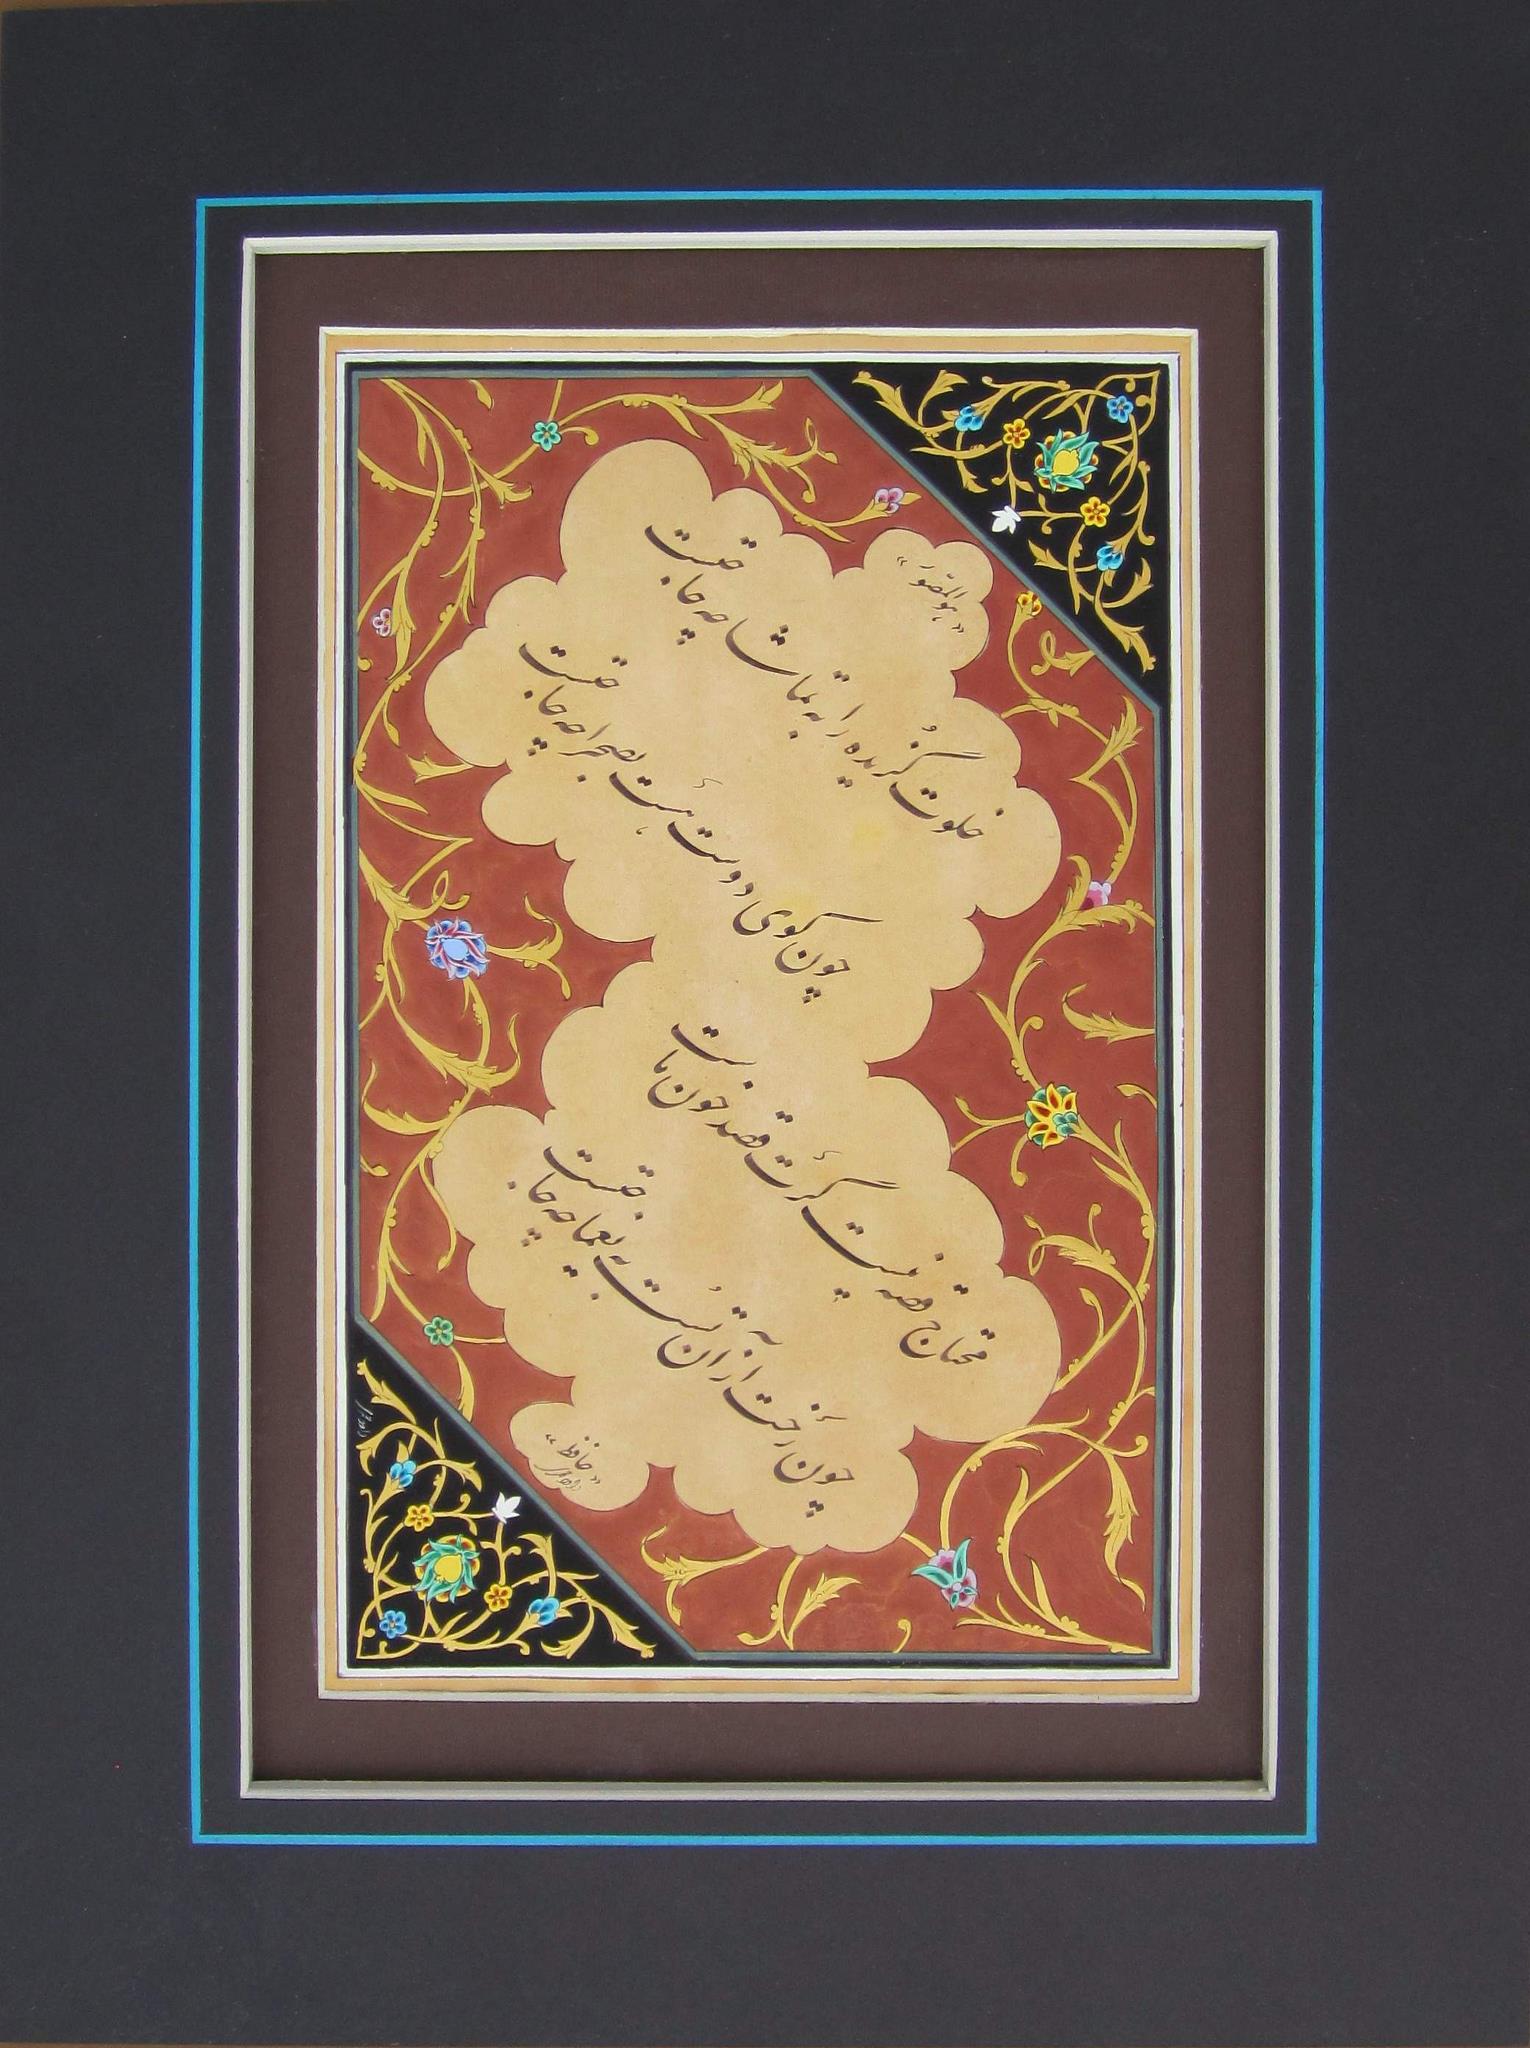 «هوالمصَوّر»
خلوت گُزیده را به تماشا چه حاجتست
چون کوی دوست هست بصحرا چه حاجتست
محتاج قصه نیست گرت قصد خون ماست
چون رَخت از آن تُست به یغما چه حاجتست
«حافظ»